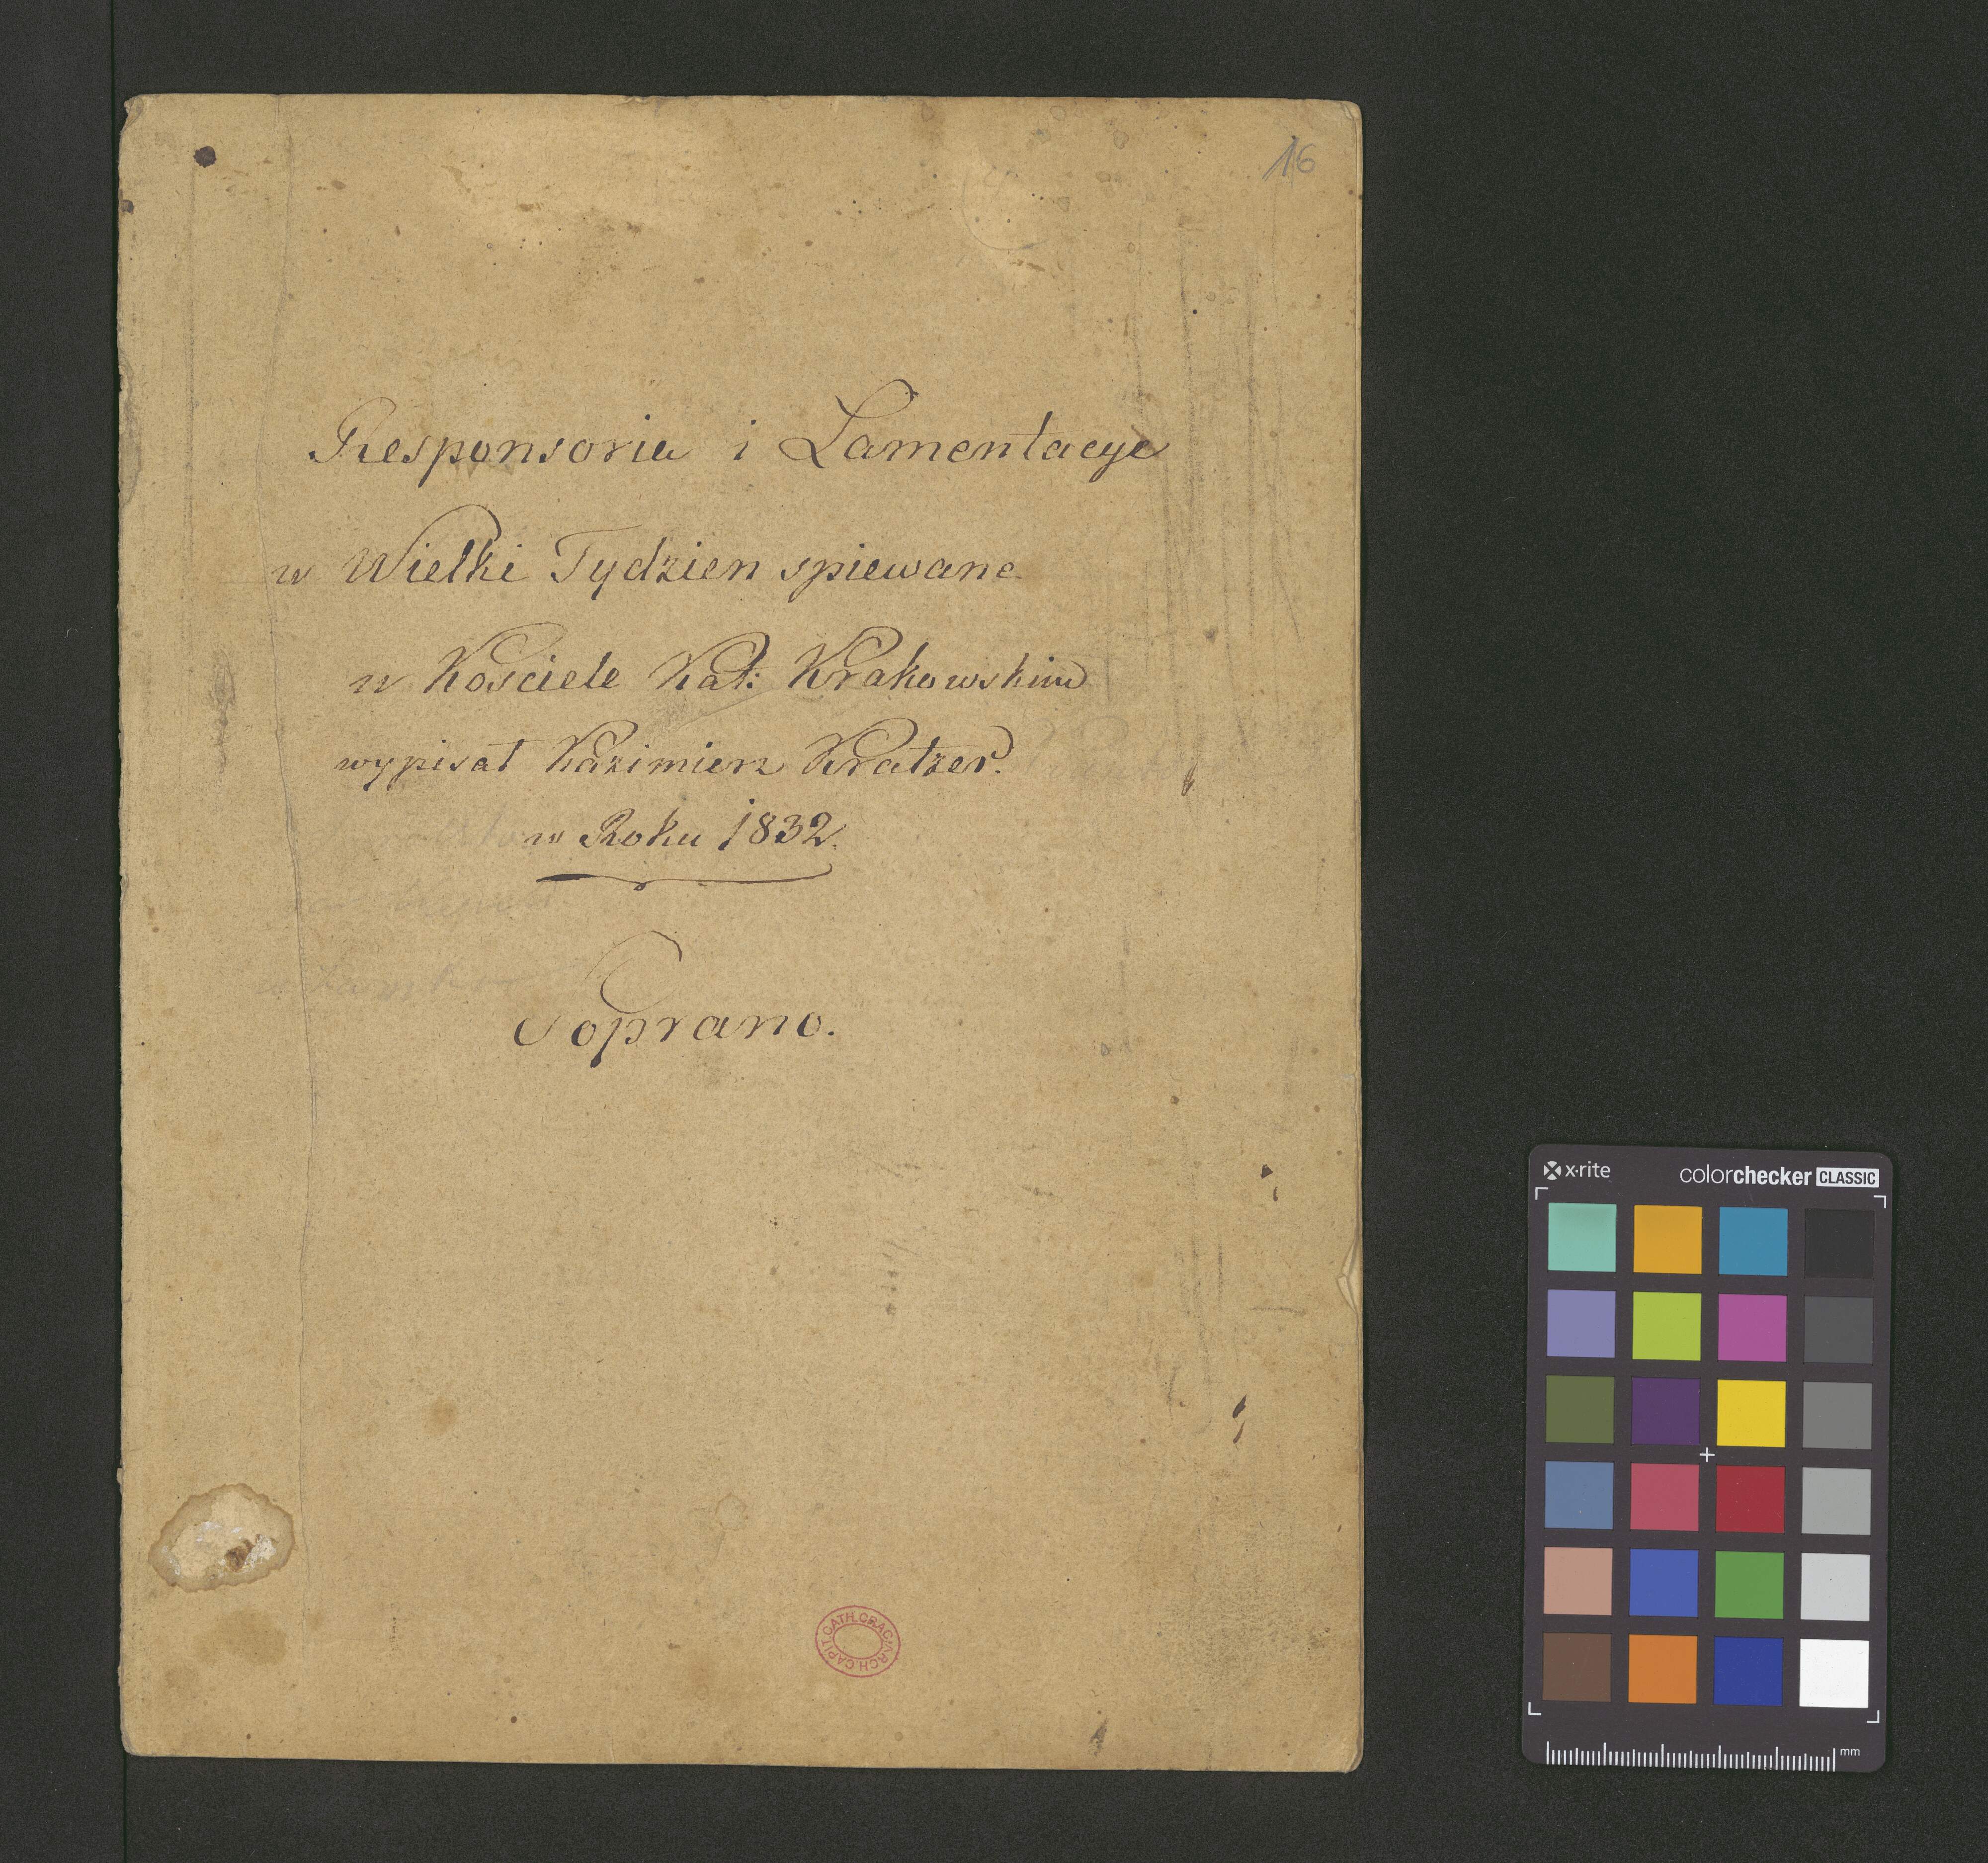 16
Responsoria i Lamentacye
w Wielki Tydzien spiewane
w Kosciele Kat: Krakowskim
wypisał Kazimierz Kratzer.
w Roku 1832.
Soprano.
CAPIT.CATH.CRAC. ARCH.
x·rite colorchecker CLASSIC
mm